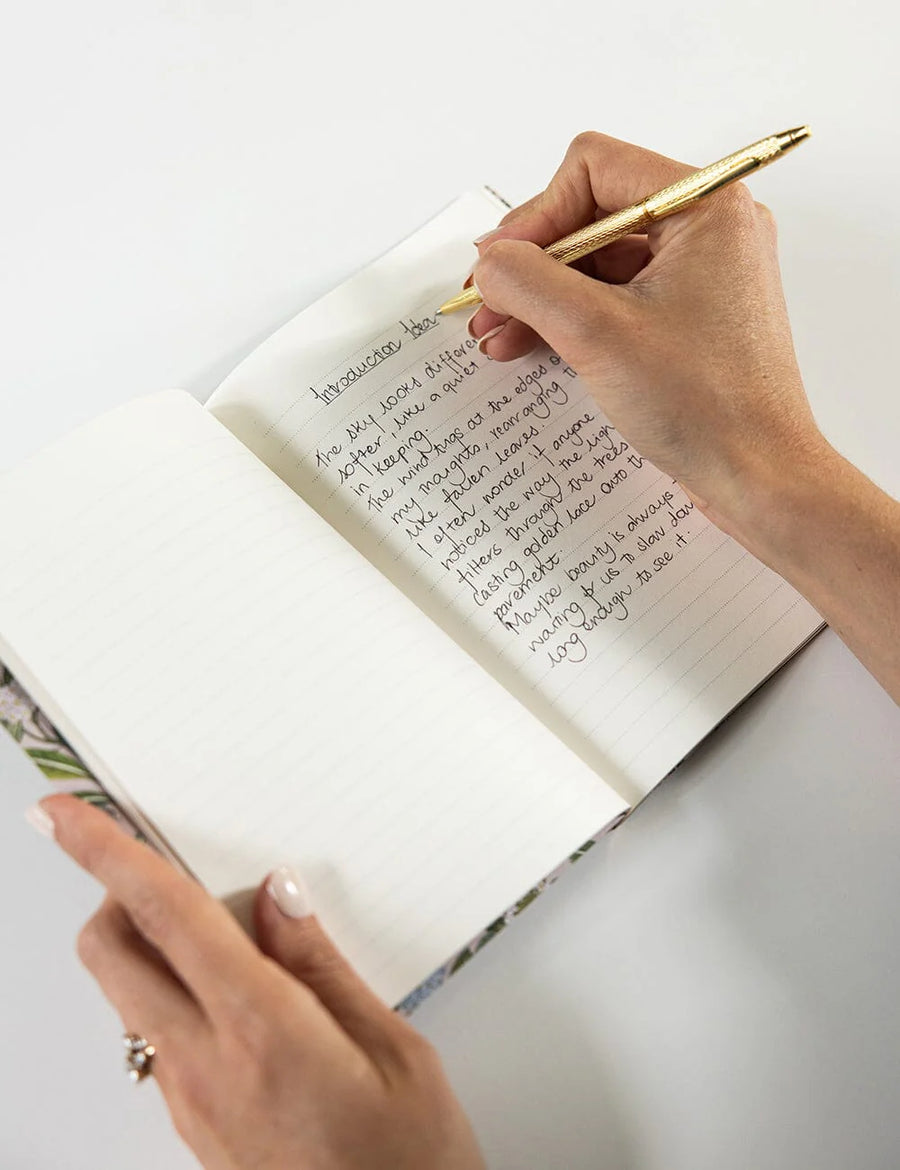 Introduction Idea
The sky looks differe
softer, like a quiet
in keeping.
The wind tugs at the edges o
my thoughts, rearranging th
like fallen leaves.
I often wonder if anyone
notices the way the ligh
filters through the trees
casting golden lace onto th
pavement.
Maybe beauty is always
waiting for us to slow dow
long enough to see it.